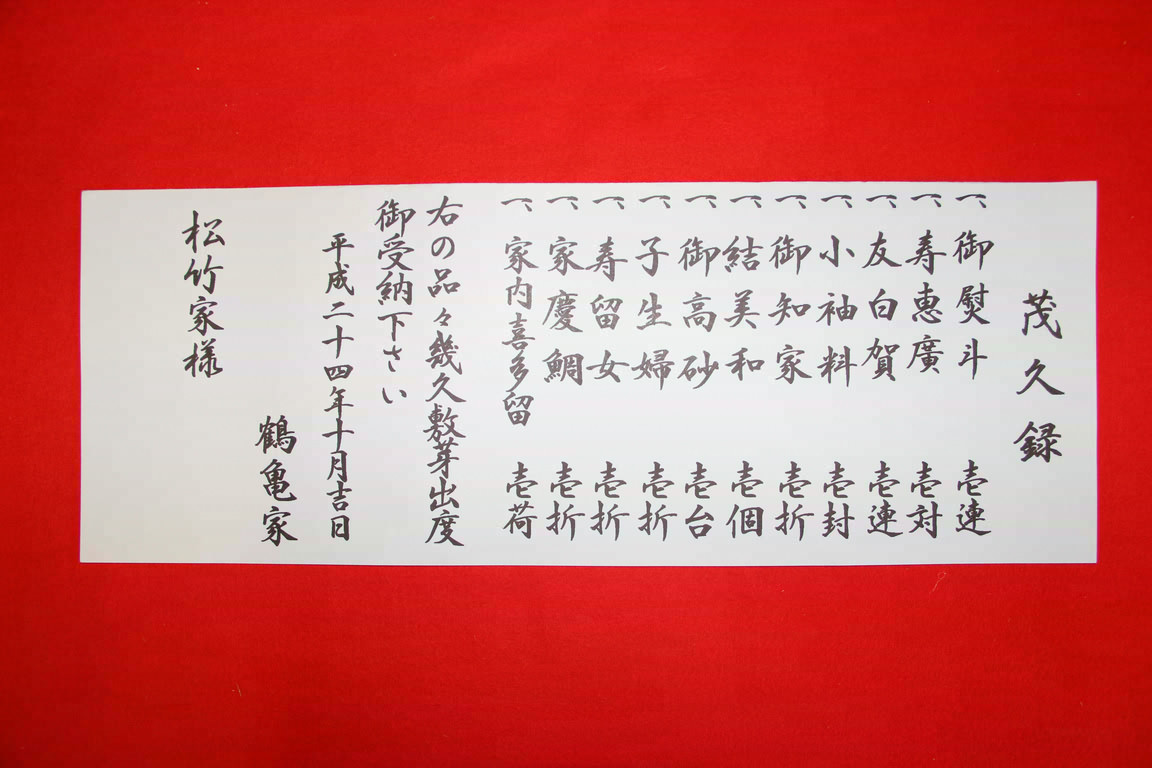 茂久録
一、御熨斗 壱連
一、寿恵廣 壱対
一、友白賀 壱連
一、小袖料 壱封
一、御知家 壱折
一、結美和 壱個
一、御高砂 壱台
一、子生婦 壱折
一、寿留女 壱折
一、家慶鯛 壱折
一、家内喜多留 壱荷
右の品々幾久敷芽出度
御受納下さい
平成二十四年十月吉日
鶴亀家
松竹家様